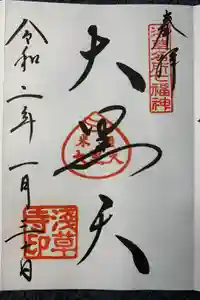 奉拝
浅草名所七福神
大黒天
令和二年一月三十日
浅草寺印